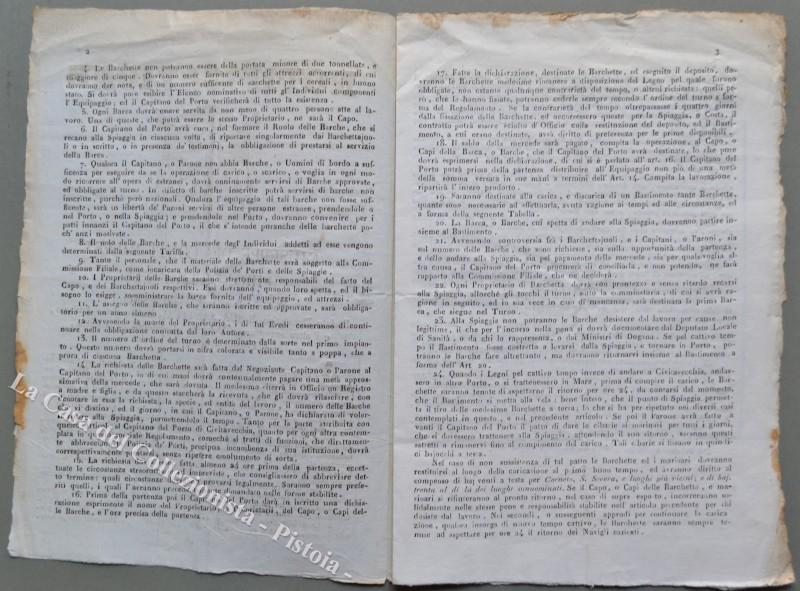 2
4. Le Barchette non potranno essere della portata minore di due tonnellate, e
maggiore di cinque. Dovranno esser fornite di tutti gli attrezzi occorrenti, di cui
dovranno dar nota, e di un numero sufficiente di sacchette per i cereali, in buono
stato. Si dovrà pure esibire l'Elenco nominativo di tutti gli Individui componenti
l'Equipaggio, ed il Capitano del Porto verificherà di tutto la esistenza.
5. Ogni Barca dovrà essere servita da non meno di quattro persone atte al la-
voro. Una di queste, che potrà essere lo stesso Proprietario, ne sarà il Capo.
6. Il Capitano del Porto avrà cura, nel formare il Ruolo delle Barche, che si
recano alla Spiaggia in ciascuna volta, di riportare singolarmente dai Barchettajuo-
li o in iscritto, o in presenza de' testimonj, la obbligazione di prestarsi al servizio
della Barca.
7. Qualora il Capitano, o Parone non abbia Barche, o Uomini di bordo a suf-
ficienza per eseguire da se la operazione di carico, o scarico, e voglia in ogni mo-
do ricorrere all'opera di estranei, dovrà onninamente servirsi di Barche approvate,
ed obbligate al turno. In difetto di barche inscritte potrà servirsi di barche non
inscritte, purchè però nazionali. Qualora l'equipaggio di tali barche non fosse suffi-
ciente, sarà in libertà de' Paroni servirsi di altre persone estranee, prendendole o
nel Porto, o nella Spiaggia; e prendendole nel Porto, dovranno convenire per i
patti innanzi il Capitano del Porto, il che s'intende pure delle barchette poch'
anzi motivate.
8. Il nolo delle Barche, e la mercede degl' Individui addetti ad esse vengono
determinati dalla seguente Tariffa.
9. Tanto il personale, che il materiale delle Barchette sarà soggetto alla Com-
missione Filiale, come incaricata della Polizia de' Porti e delle Spiagge.
10. I Proprietarii delle Barche saranno ritenuti responsabili del fatto del
Capo, e dei Barchettajuoli respettivi. Essi dovranno, quando loro spetta, ed il bi-
sogno lo esigge, somministrare la barca fornita dell'equipaggio, ed attrezzi.
11. L'assegno delle Barche, che saranno iscritte ed approvate, sarà obbliga-
torio per un anno almeno
12. Avvenendo la morte del Proprietario, i di lui Eredi cesseranno di conti-
nuare nella obbligazione contratta dal loro Autore.
13. Il numero d'ordine del turno è determinato dalla sorte nel primo impian-
to. Questo numero dovrà portarsi in cifra colorata e visibile tanto a poppa, che a
prora di ciascuna Barchetta.
14. La richiesta delle Barchette sarà fatta dal Negoziante Capitano o Parone al
Capitano del Porto, in di cui mani dovrà contestualmente pagare una metà appros-
simativa della mercede, che sarà dovuta. Il medesimo riterrà in Officio un Registro
madre e figlia, e da questo staccherà la ricevuta, che gli dovrà rilasciare, con
notare in essa la richiesta, la specie, ed entità del lavoro, il numero delle Barche
a cui destina, ed il giorno, in cui il Capitano, o Parone, ha dichiarato di voler-
si recare alla Spiaggia, permettendolo il tempo. Tanto per la parte attribuita con
questo articolo al Capitano del Porto di Civitavecchia, quanto per ogni altra contem-
plata in questo Regolamento, comechè si tratti di funzioni, che direttamen-
te abbracciano la Polizia de' Porti, precipua incombenza di sua istituzione, dovrà
corrispettivamente prestarsi, senza ripetere onorifico di sorta.
15. La richiesta dovrà essere fatta almeno 24 ore prima della partenza, eccet-
tuate le circostanze straordinarie ed impreviste, che consigliassero di abbreviare det-
to termine: quali circostanze dovranno comprovarsi legalmente. Saranno sempre prefe-
riti quelli, i quali l'avranno prenotata domandate nelle forme stabilite.
16. Prima della partenza poi il Capitano del Porto darà in iscritto una dichia-
razione esprimente il nome del Proprietario, o Proprietarii, del Capo, o Capi del-
le Barche, e l'ora precisa della partenza.
3
17. Fatta la dichiarazione, destinate le Barchette, ed eseguito il deposito, do-
vranno le Barchette medesime rimanere a disposizione del Legno pel quale furono
obbligate, non ostante qualunque contrarietà del tempo, o altra richiesta: quelli pe-
rò, che le hanno fissate, potranno cederle sempre secondo l'ordine del turno a fog-
ma del Regolamento. Se la contrarietà del tempo oltrepassasse i quattro giorni
dalla fissazione delle Barchette, ed occorressero queste per la Spiaggia, o Costa, il
contratto potrà essere risoluto d'Officio colla restituzione del deposito, ed il Basti-
mento, a cui erano destinate, avrà diritto di preferenza per le prime disponibili.
18. Il saldo della mercede sarà pagato, compita la operazione, al Capo, o
Capi della Barca, o Barche, che il Capitano del Porto avrà destinate, lo che pure
dovrà esprimersi nella dichiarazione, di cui si è parlato all'art. 16. Il Capitano del
Porto potrà prima della partenza distribuire all'Equipaggio non più di una metà
della somma versata in sue mani a termini dell'Art. 14. Compita la lavorazione,
ripartirà l'intero prodotto.
19. Saranno destinate alla carica, e discarica di un Bastimento tante Barchette,
quante sono necessarie ad effettuarla, avuta ragione ai tempi ed alle circostanze, ed
a forma della seguente Tabella.
20. La Barca, o Barche, cui spetta di andare alla Spiaggia, dovranno partire in-
sieme al Bastimento.
21. Avvenendo controversia frà i Barchettajuoli, e i Capitani, o Paroni, sia
sul numero delle Barche, che sono richieste, sia nella opportunità della partenza,
e dello andare alla Spiaggia, sia pel pagamento della mercede, sia per qualsivoglia al-
tra causa, il Capitano del Porto procurerà di conciliarla, e non potendo, ne farà
rapporto alla Commissione Filiale, che ne deciderà.
22. Ogni Proprietario di Barchetta dovrà con prontezza e senza ritardo recarsi
alla Spiaggia, allorchè gli tocchi il turno, sotto la comminatoria, di cui si avrà ra-
gione in seguito, ed in sua vece in caso di mancanza, sarà destinata la prima Bar-
ca, che siegue nel Turno.
23. Alla Spiaggia non potranno le Barchette desistere dal lavoro per cause non
legittime, il che per l'incorso nella pena si dovrà documentare dal Deputato Locale
di Sanità, o da chi lo rappresenta, o dai Ministri di Dogana. Se pel cattivo tem-
po il Bastimento fosse costretto a levarsi dalla Spiaggia, e tornare in Porto, po-
tranno le Barche fare altrettanto, ma dovranno ritornarvi insieme al Bastimento a
forma dell'Art. 20.
24. Quando i Legni pel cattivo tempo invece di andare a Civitavecchia, andas-
sero in altro Porto, o si trattenessero in Mare, prima di compire il carico, le Bar-
chette saranno tenute di aspettarne il ritorno per ore 24, da contarsi dal momento,
che il Bastimento si metta alla vela; bene inteso, che il punto di Spiaggia permet-
ta il tiro delle medesime Barchette a terra; lo che si ha per ripetuto nei diversi casi
contemplati in questo, e nel precedente articolo. Se poi il Parone avrà fatto a-
vanti il Capitano del Porto il patto di dare le cibarie ai marinari per tutti i giorni,
che si dovessero trattenere alla Spiaggia, attendendo il suo ritorno, saranno questi
astretti a rimanervi fino al compimento del carico. Tali cibarie si fissano in quindi-
ci bajocchi a testa.
Nel caso di non sussistenza di tal patto le Barchette ed i marinari dovranno
restituirsi al luogo della caricazione al primo buon tempo, ed avranno diritto al
compenso di baj venti a testa per Corneto, S. Severa, e luoghi più vicini, e di baj
trenta al di là dei luoghi nominati. Se il Capo, o Capi delle Barchette, e ma-
rinari si rifiutassero al pronto ritorno, nel caso di sopra esposto, incorreranno so-
lidalmente nelle stesse pene e responsabilità stabilite nell'articolo precedente per chi
desiste dal lavoro. Nei secondi, o susseguenti approdi per continuare la carica-
zione, qualora insorga di nuovo tempo cattivo, le Barchette saranno sempre te-
nute ad aspettare per ore 24 il ritorno dei Navigli caricati.
La Casa del Collezionista - Pistoia -